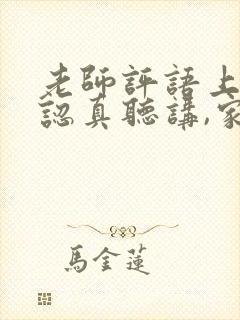 老師評語上
認真聽講,家
馬金蓮